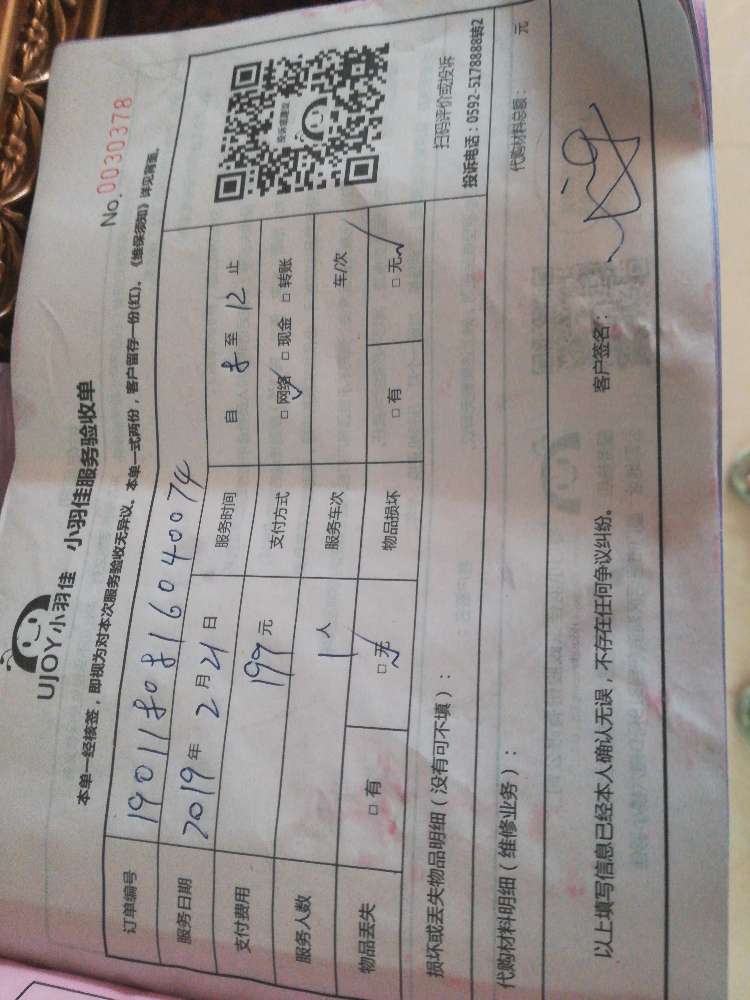 UJOY小羽佳 小羽佳服务验收单
No.0030378
本单一经核签,即视为对本次服务验收无异议、本单一式两份,客户留存一份(红)、《维保须知》详见背面。
订单编号 1901180816040074
服务日期 2019年2月21日 服务时间 自 8 至 12 止
支付费用 199元 支付方式 □网络 □现金 □转账
服务人数 1人 服务车次 车/次
物品丢失 □有 □无 物品损坏 □有 □无
扫码评价或投诉
投诉电话:0592-5178888转2
损坏或丢失物品明细(没有可不填):
代购材料明细(维修业务): 代购材料总额: 元
以上填写信息已经本人确认无误,不存在任何争议纠纷。 客户签名: